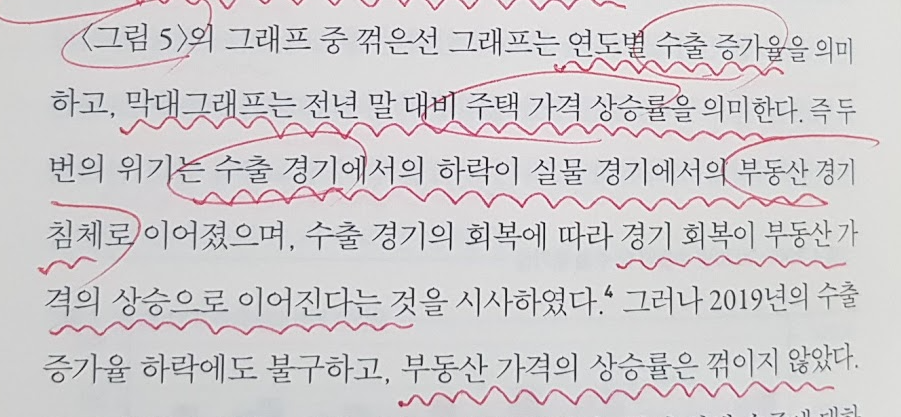 〈그림 5〉의 그래프 중 꺾은선 그래프는 연도별 수출 증가율을 의미
하고, 막대그래프는 전년 말 대비 주택 가격 상승률을 의미한다. 즉 두
번의 위기는 수출 경기에서의 하락이 실물 경기에서의 부동산 경기
침체로 이어졌으며, 수출 경기의 회복에 따라 경기 회복이 부동산 가
격의 상승으로 이어진다는 것을 시사하였다.⁴ 그러나 2019년의 수출
증가율 하락에도 불구하고, 부동산 가격의 상승률은 꺾이지 않았다.